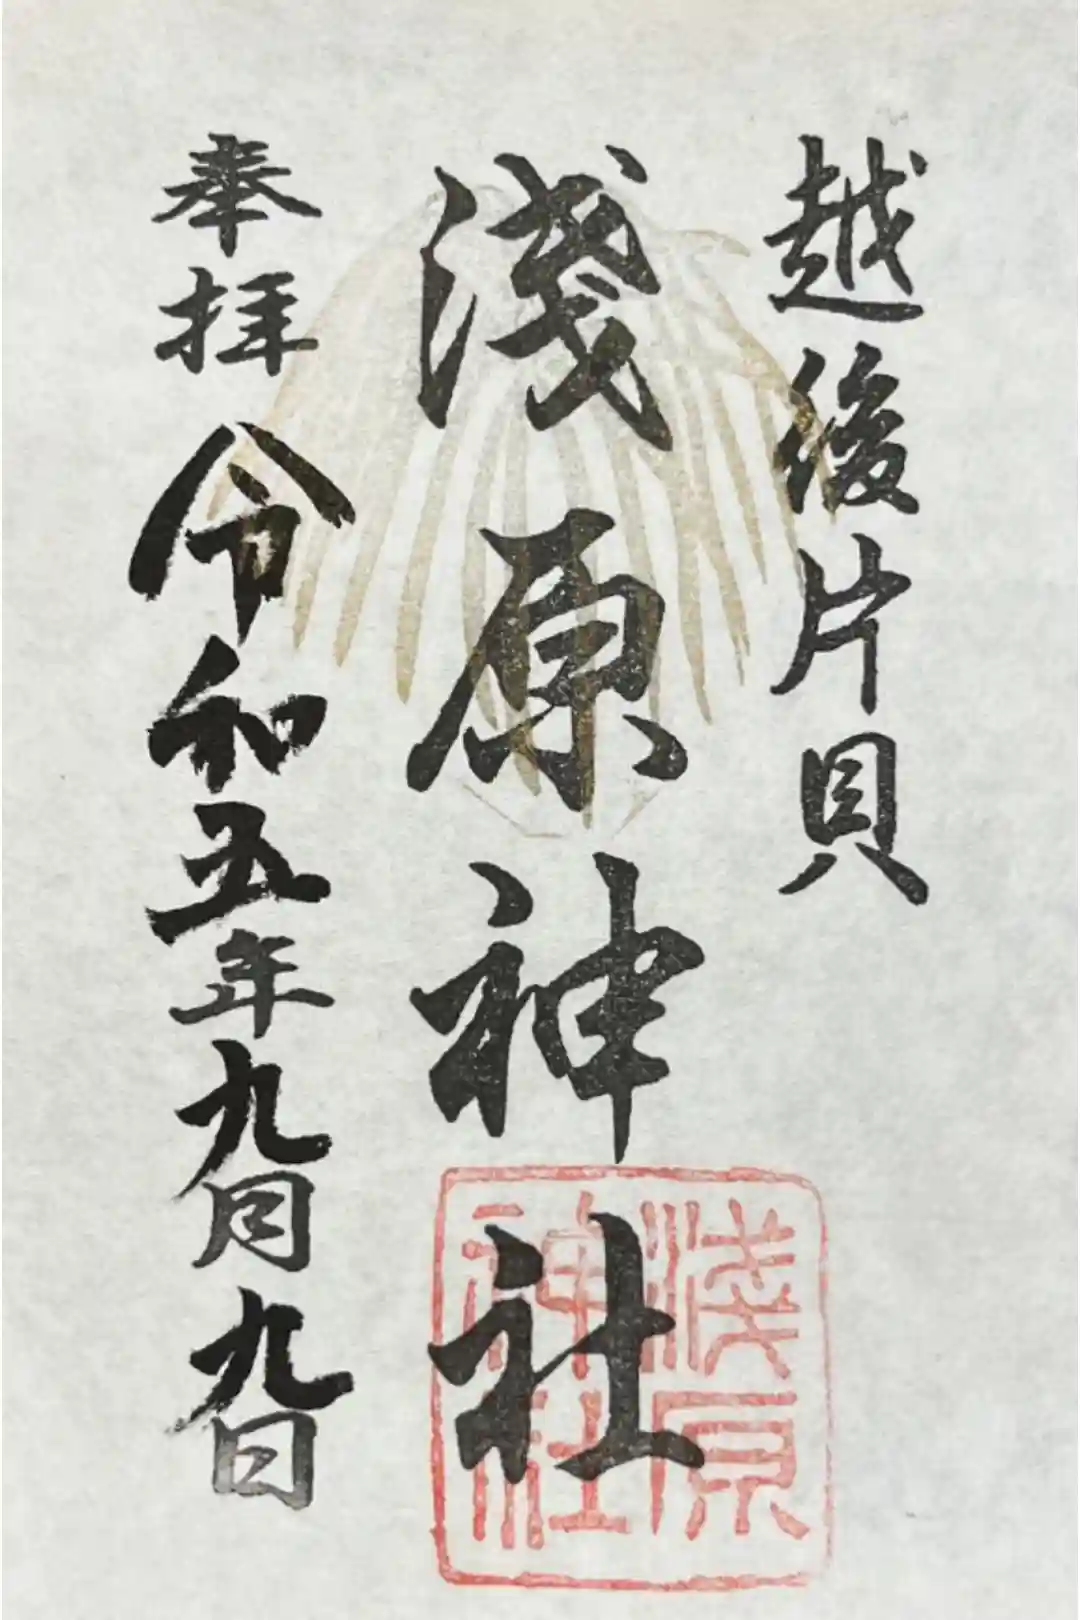 越後片貝
浅原神社
奉拝 令和五年九月九日
浅原
神社